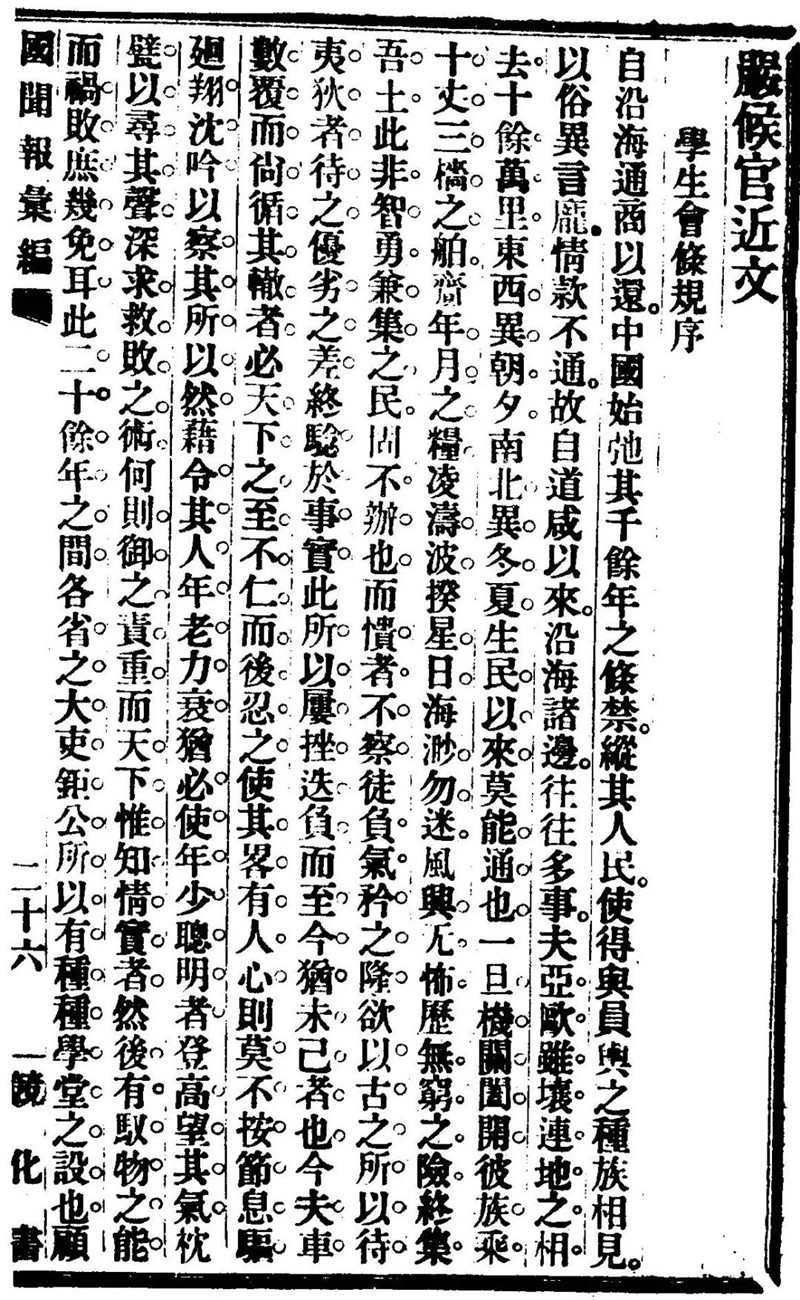 嚴候官近文
學生會條規序
自沿海通商以還。中國始弛其千餘年之條禁。縱其人民。使得與員輿之種族相見。
以俗異言龐。情款不通。故自道咸以來。沿海諸邊。往往多事。夫亞歐雖壤連地之相
去十餘萬里東西異朝夕南北異冬夏生民以來莫能通也一旦機關闓開彼族乘
十丈三檣之舶齎年月之糧凌濤波揆星日海渺勿迷風興无怖歷無窮之險終集
吾土此非智勇兼集之民固不辦也而憒者不察徒負氣矜之隆欲以古之所以待
夷狄者待之優劣之差終驗於事實此所以屢挫迭負而至今猶未已者也今夫車
數覆而尙循其轍者必天下之至不仁而後忍之使其畧有人心則莫不按節息驅
廻翔沈吟以察其所以然藉令其人年老力衰猶必使年少聰明者登高望其氣枕
甓以尋其聲深求救敗之術何則御之責重而天下惟知情實者然後有馭物之能
而禍敗庶幾免耳此二十餘年之間各省之大吏鉅公所以有種種學堂之設也顧
國聞報彙編
二十六
化書